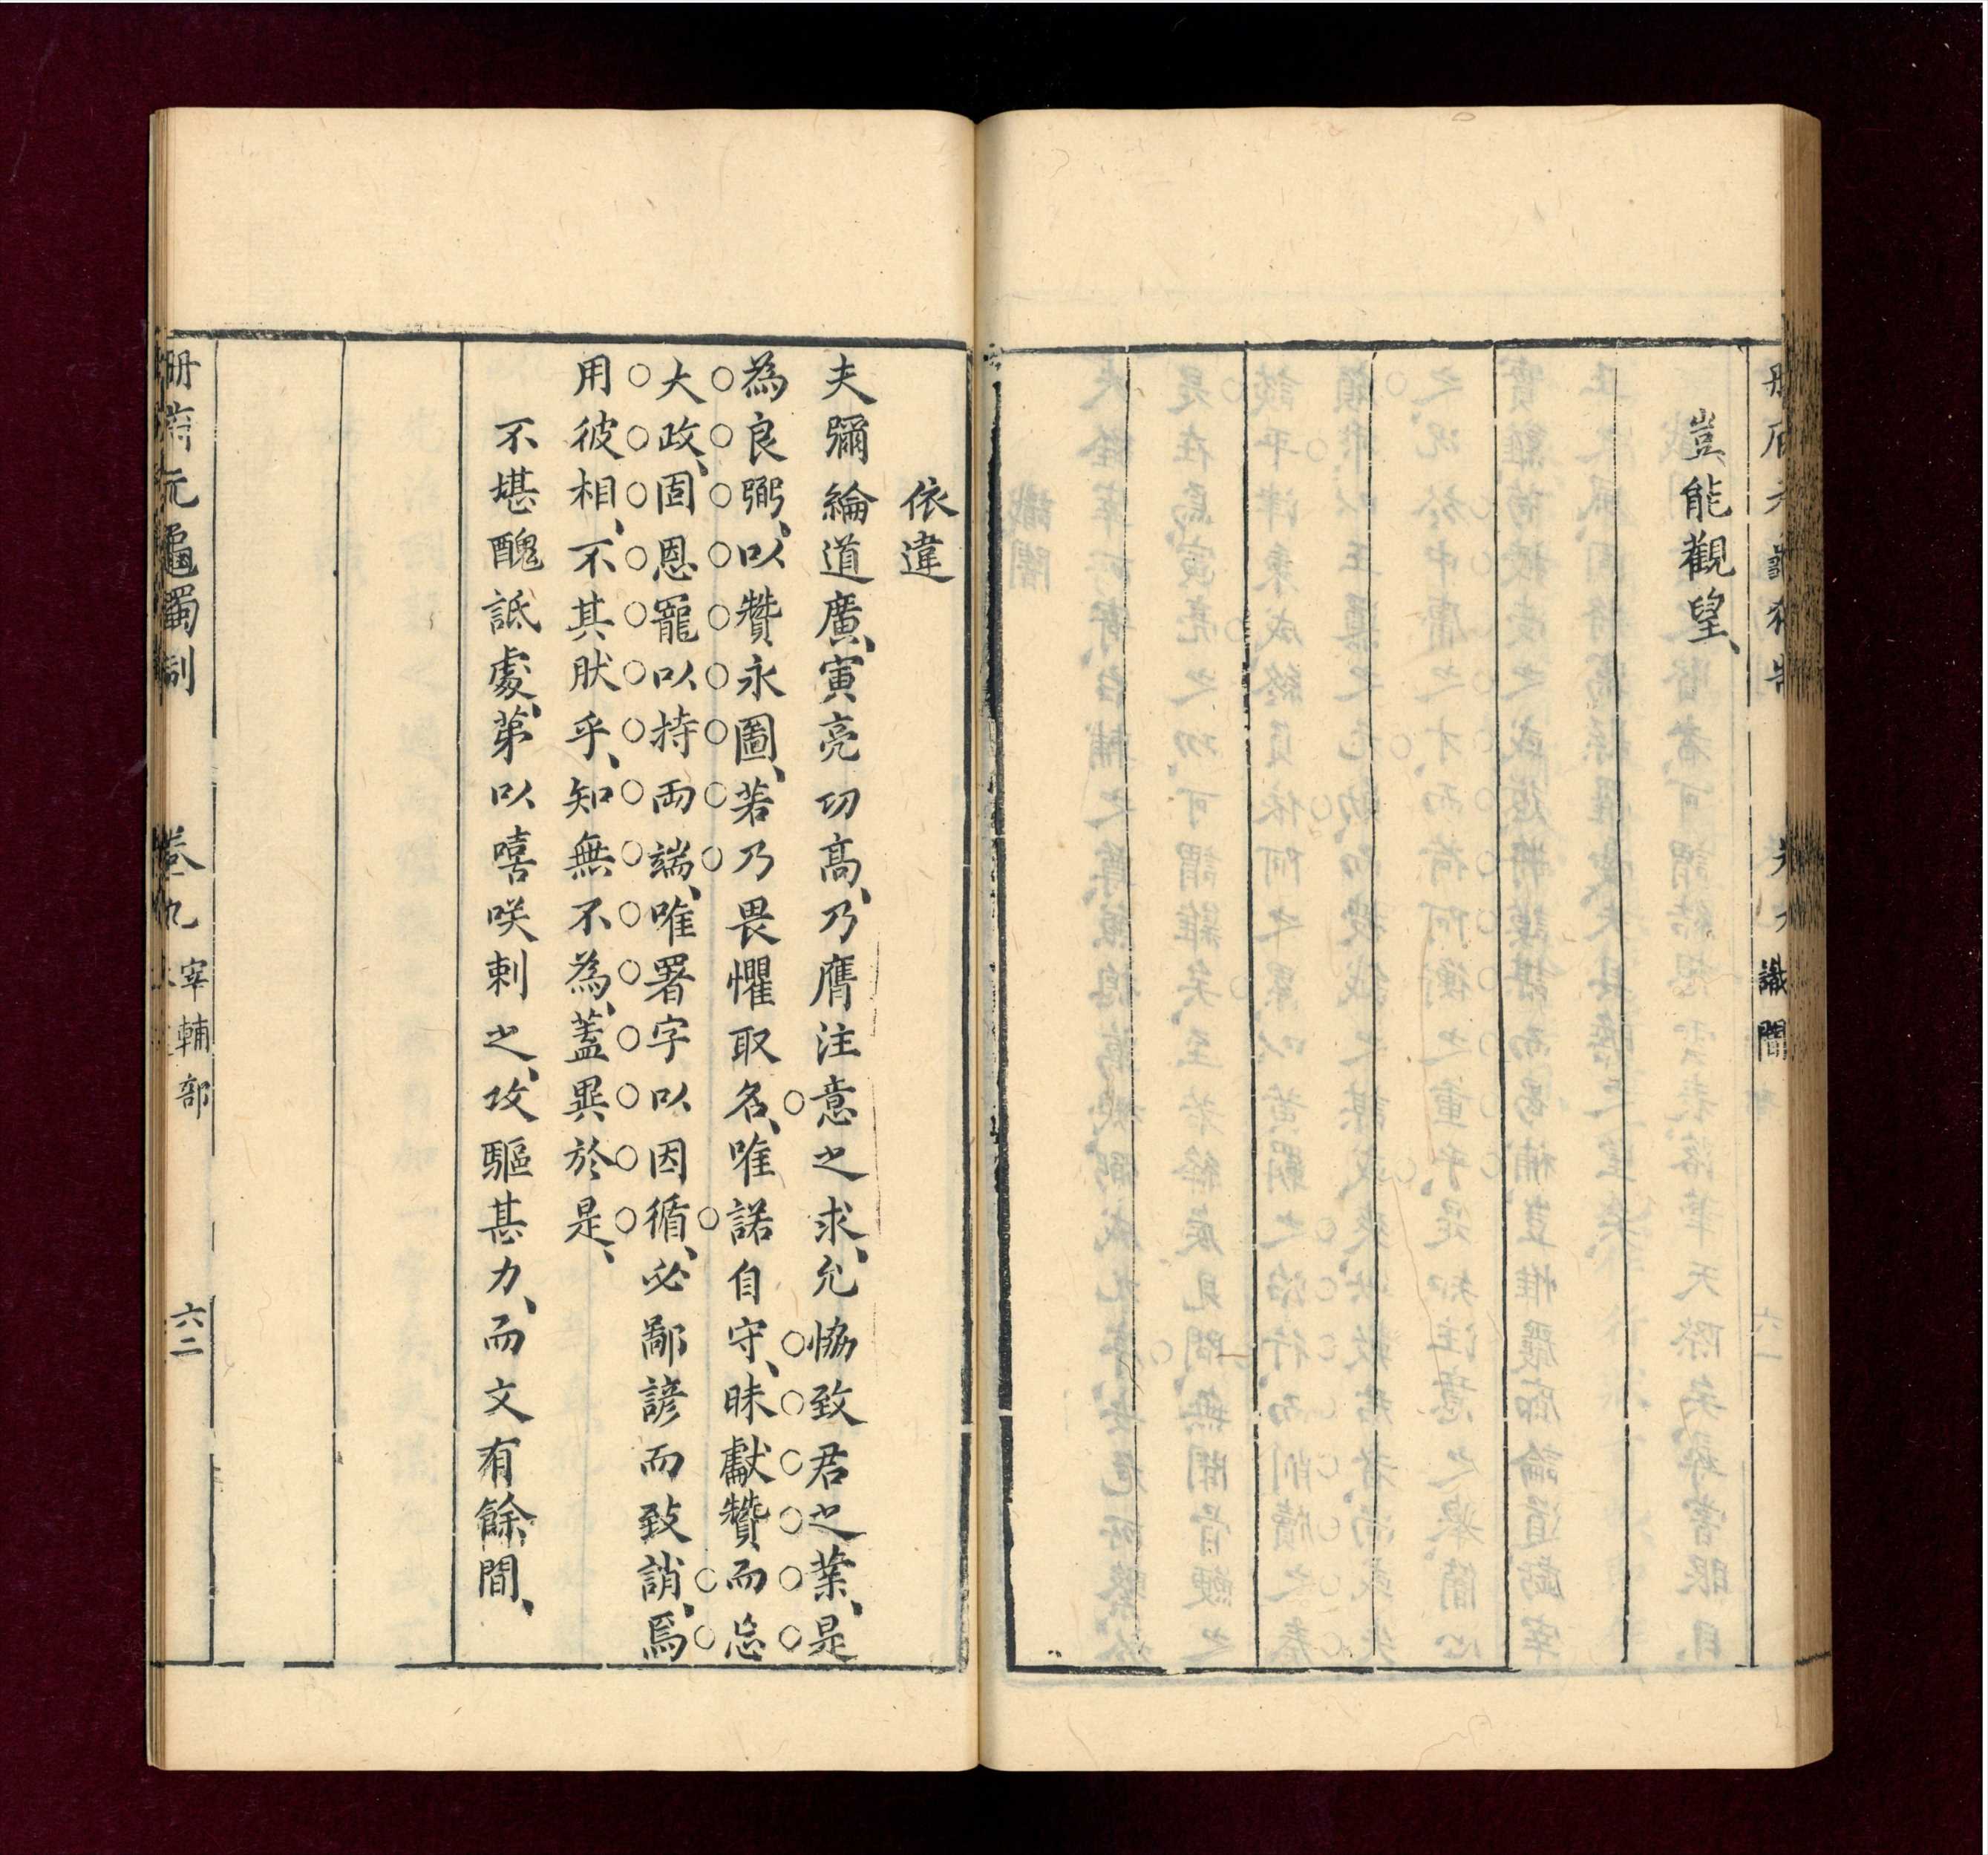 豈能觀望、
識闇
依違
夫彌綸道廣、寅亮功高、乃膺注意之求、允恊致君之業、是
為良弼、以贊永圖、若乃畏懼取名、唯諾自守、昧獻贊而忘
大政、固恩寵以持兩端、唯署字以因循、必鄙諺而致誚、焉
用彼相、不其肰乎、知無不為、蓋異於是、
不堪醜詆處、苐以嘻咲刺之、攻驅甚力、而文有餘間、
冊府元龜獨制
卷九
宰輔部
六二